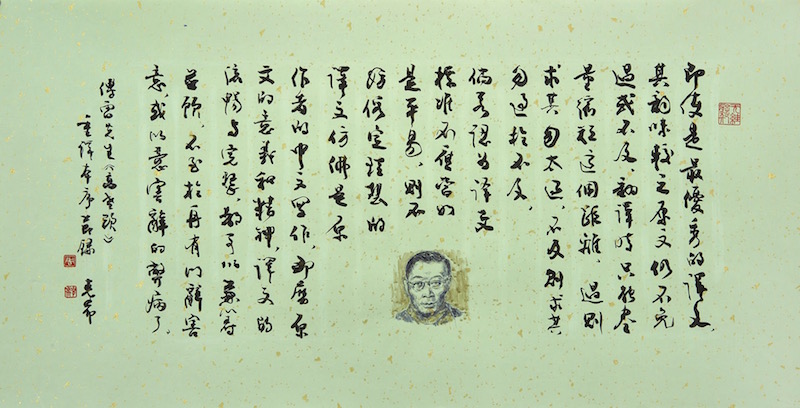 即使是最優秀的譯文，
其韵味較之原文仍不免
過或不及，翻譯時只能盡
量縮短這個距離，過則
求其勿太過，不及則求其
勿過於不及。
倘若認為譯文
標準不應當如
是平易，則不
妨假定理想的
譯文仿佛是原
作者的中文寫作，那麼原
文的意義和精神，譯文的
流暢與完整，都可以兼籌
並顧，不至於再有以辭害
意，或以意害辭的弊病了。
傅雷先生《高老頭》
重譯本序节錄
克希